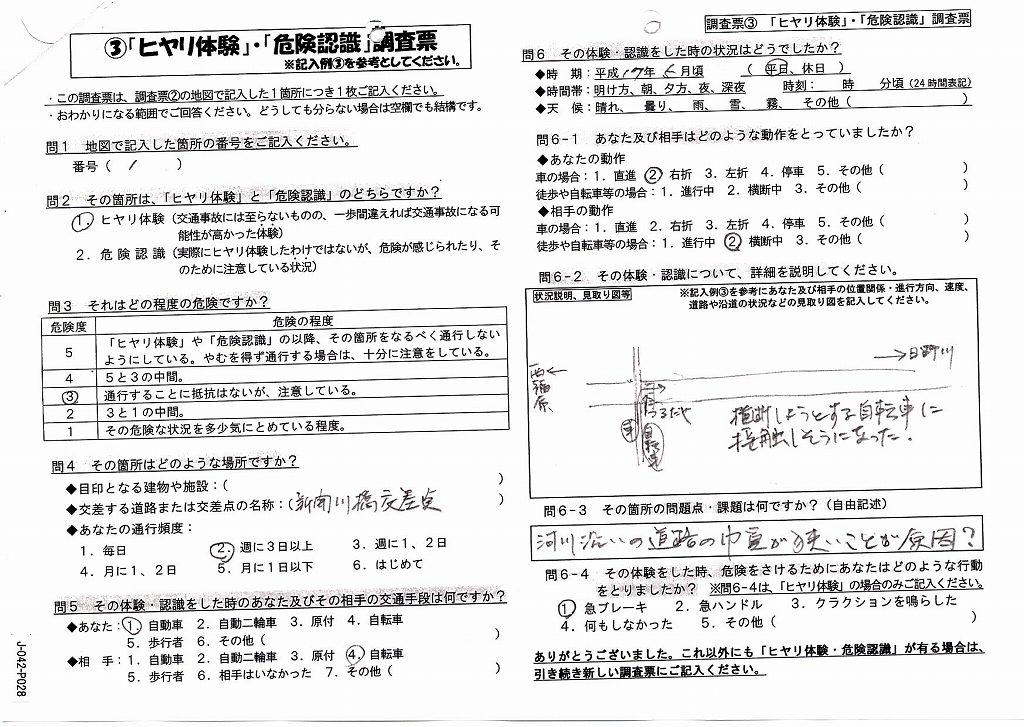 ③「ヒヤリ体験」・「危険認識」調査票
※記入例③を参考としてください。
・この調査票は、調査票②の地図で記入した1箇所につき1枚ご記入ください。
・おわかりになる範囲でご回答ください。どうしても分らない場合は空欄でも結構です。
問1 地図で記入した箇所の番号をご記入ください。
番号( 1 )
問2 その箇所は、「ヒヤリ体験」と「危険認識」のどちらですか?
1.ヒヤリ体験(交通事故には至らないものの、一歩間違えれば交通事故になる可
能性が高かった体験)
2.危険認識(実際にヒヤリ体験したわけではないが、危険が感じられたり、そ
のために注意している状況)
問3 それはどの程度の危険ですか?
危険度 危険の程度
5 「ヒヤリ体験」や「危険認識」の以降、その箇所をなるべく通行しない
ようにしている。やむを得ず通行する場合は、十分に注意をしている。
4 5と3の中間。
③ 通行することに抵抗はないが、注意している。
2 3と1の中間。
1 その危険な状況を多少気にとめている程度。
問4 その箇所はどのような場所ですか?
◆目印となる建物や施設:( )
◆交差する道路または交差点の名称:(新開川橋交差点 )
◆あなたの通行頻度:
1.毎日 ②.週に3日以上 3.週に1、2日
4.月に1、2日 5.月に1日以下 6.はじめて
問5 その体験・認識をした時のあなた及びその相手の交通手段は何ですか?
◆あなた:①.自動車 2.自動二輪車 3.原付 4.自転車
5.歩行者 6.その他( )
◆相 手:1.自動車 2.自動二輪車 3.原付 ④.自転車
5.歩行者 6.相手はいなかった 7.その他( )
J-042-P028
調査票③ 「ヒヤリ体験」・「危険認識」調査票
問6 その体験・認識をした時の状況はどうでしたか?
◆時 期:平成17年 6月頃 (平日、休日)
◆時間帯:明け方、朝、夕方、夜、深夜 時刻: 時 分頃(24時間表記)
◆天 候:晴れ、曇り、雨、雪、霧、その他( )
問6-1 あなた及び相手はどのような動作をとっていましたか?
◆あなたの動作
車の場合:1.直進 ②.右折 3.左折 4.停車 5.その他( )
徒歩や自転車等の場合:1.進行中 2.横断中 3.その他( )
◆相手の動作
車の場合:1.直進 2.右折 3.左折 4.停車 5.その他( )
徒歩や自転車等の場合:1.進行中 ②.横断中 3.その他( )
問6-2 その体験・認識について、詳細を説明してください。
状況説明、見取り図等
※記入例③を参考にあなた及び相手の位置関係・進行方向、速度、
道路や沿道の状況などの見取り図を記入してください。
→日野川
西福原
つるだや
車
自転車
横断しようとする自転車に
接触しそうになった。
問6-3 その箇所の問題点・課題は何ですか?(自由記述)
河川沿いの道路の巾員が狭いことが原因?
問6-4 その体験をした時、危険をさけるためにあなたはどのような行動
をとりましたか? ※問6-4は、「ヒヤリ体験」の場合のみご記入ください。
①急ブレーキ 2.急ハンドル 3.クラクションを鳴らした
4.何もしなかった 5.その他( )
ありがとうございました。これ以外にも「ヒヤリ体験・危険認識」が有る場合は、
引き続き新しい調査票にご記入ください。